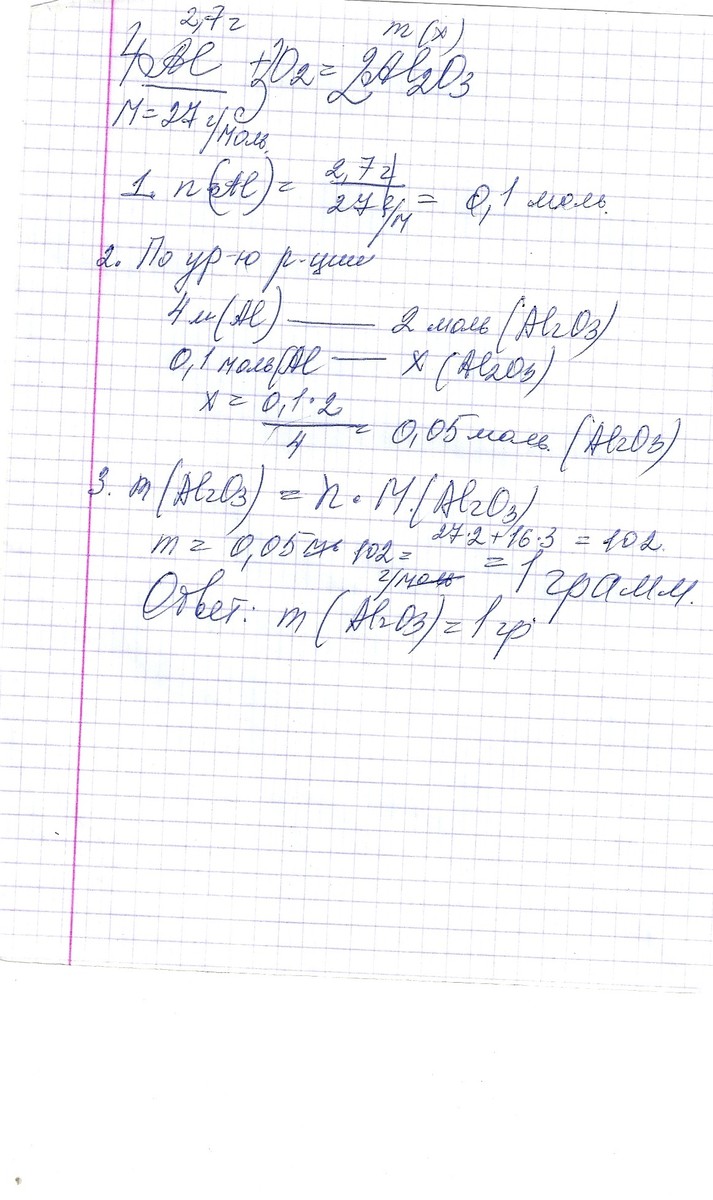 2,7 г m (x)
4Al + 3O2 = 2Al2O3
M = 27 г/моль
1. n(Al) = 2,7 г / 27 г/м = 0,1 моль.
2. По ур-ю р-ции
4 м (Al) — 2 моль (Al2O3)
0,1 моль(Al — x (Al2O3)
x = 0,1·2 / 4 = 0,05 моль. (Al2O3)
3. m (Al2O3) = n · M.(Al2O3)
27·2+16·3 = 102.
m = 0,05 · 102 г/моль = = 1 грамм.
Ответ: m (Al2O3) = 1 гр